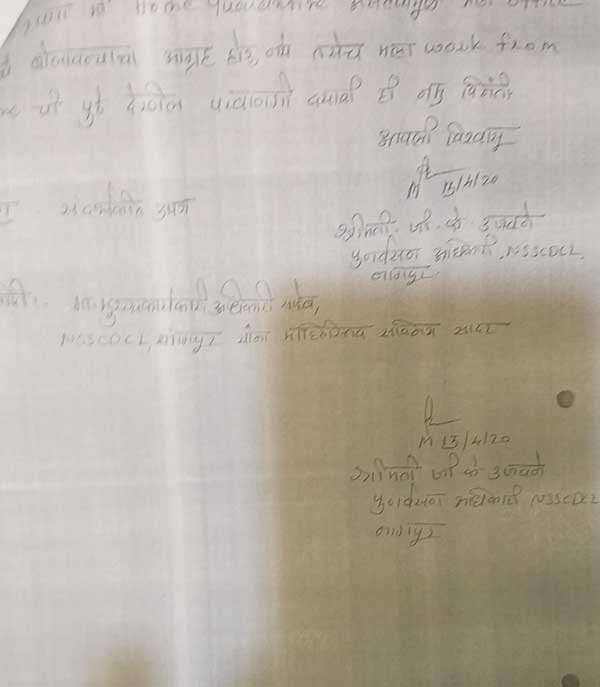 मी Home
बोलावण्याचा आग्रह होऊ नये तसेच मला work from
ची पुढे देखील परवानगी द्यावी ही नम्र विनंती.
आपली विश्वासू
M 13/4/20
श्रीमती. जी. के. उजवणे
पुनर्वसन अधिकारी, NSSCDCL,
नागपूर
अधिकारी साहेब,
NSSCDCL, नागपूर यांना माहितीस्तव सविनय सादर
M 13/4/20
श्रीमती जी के उजवणे
पुनर्वसन अधिकारी NSSCDCL
नागपूर